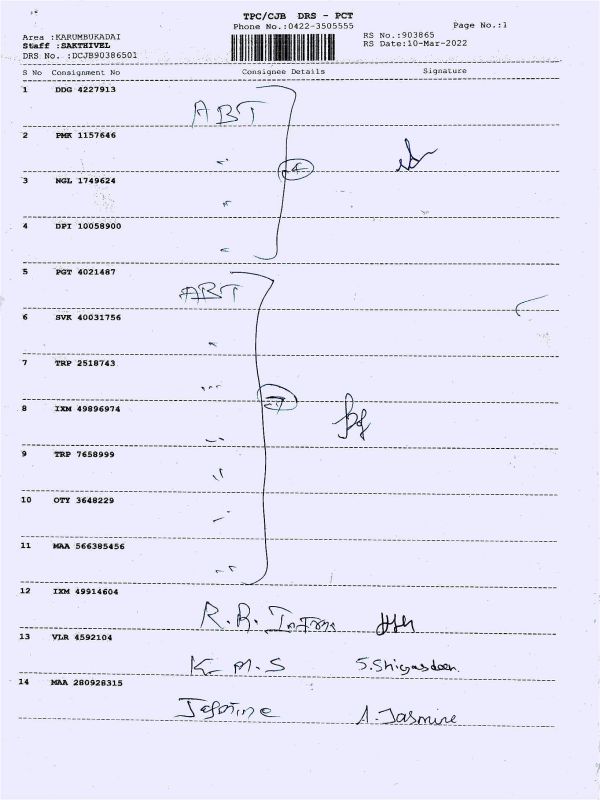 TPC/CJB DRS - PCT
Phone No.:0422-3505555 Page No.:1
Area :KARUMBUKADAI RS No.:903865
Staff :SAKTHIVEL RS Date:10-Mar-2022
DRS No. :DCJB90386501
S No Consignment No Consignee Details Signature
1 DDG 4227913
ABT
2 PMK 1157646
4
3 NGL 1749624
4 DPI 10058900
5 PGT 4021487
ABT
6 SVK 40031756
7 TRP 2518743
7
8 IXM 49896974
9 TRP 7658999
10 OTY 3648229
11 MAA 566385456
12 IXM 49914604
R.R.
13 VLR 4592104
K.M.S
14 MAA 280928315
A. Jasmine